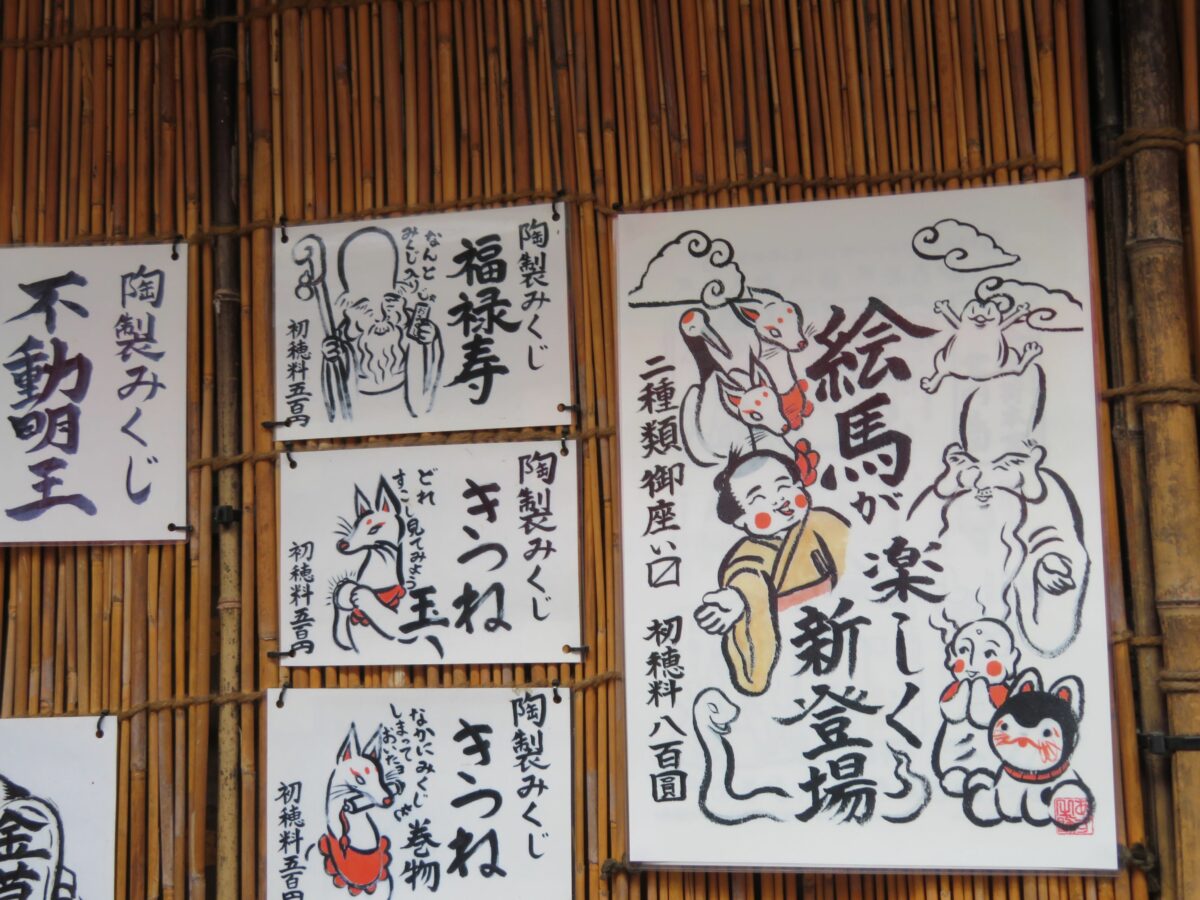 陶製みくじ
不動明王
陶製みくじ
福禄寿
なんと
みくじ入り
じゃ
初穂料五百円
陶製みくじ
きつね
どれ
すこし見てみよう
玉
初穂料五百円
陶製みくじ
きつね
なかにみくじ
しまって
おいたョ
巻物
初穂料五百円
絵馬が楽しく
新登場
二種類御座い〼
初穂料八百圓